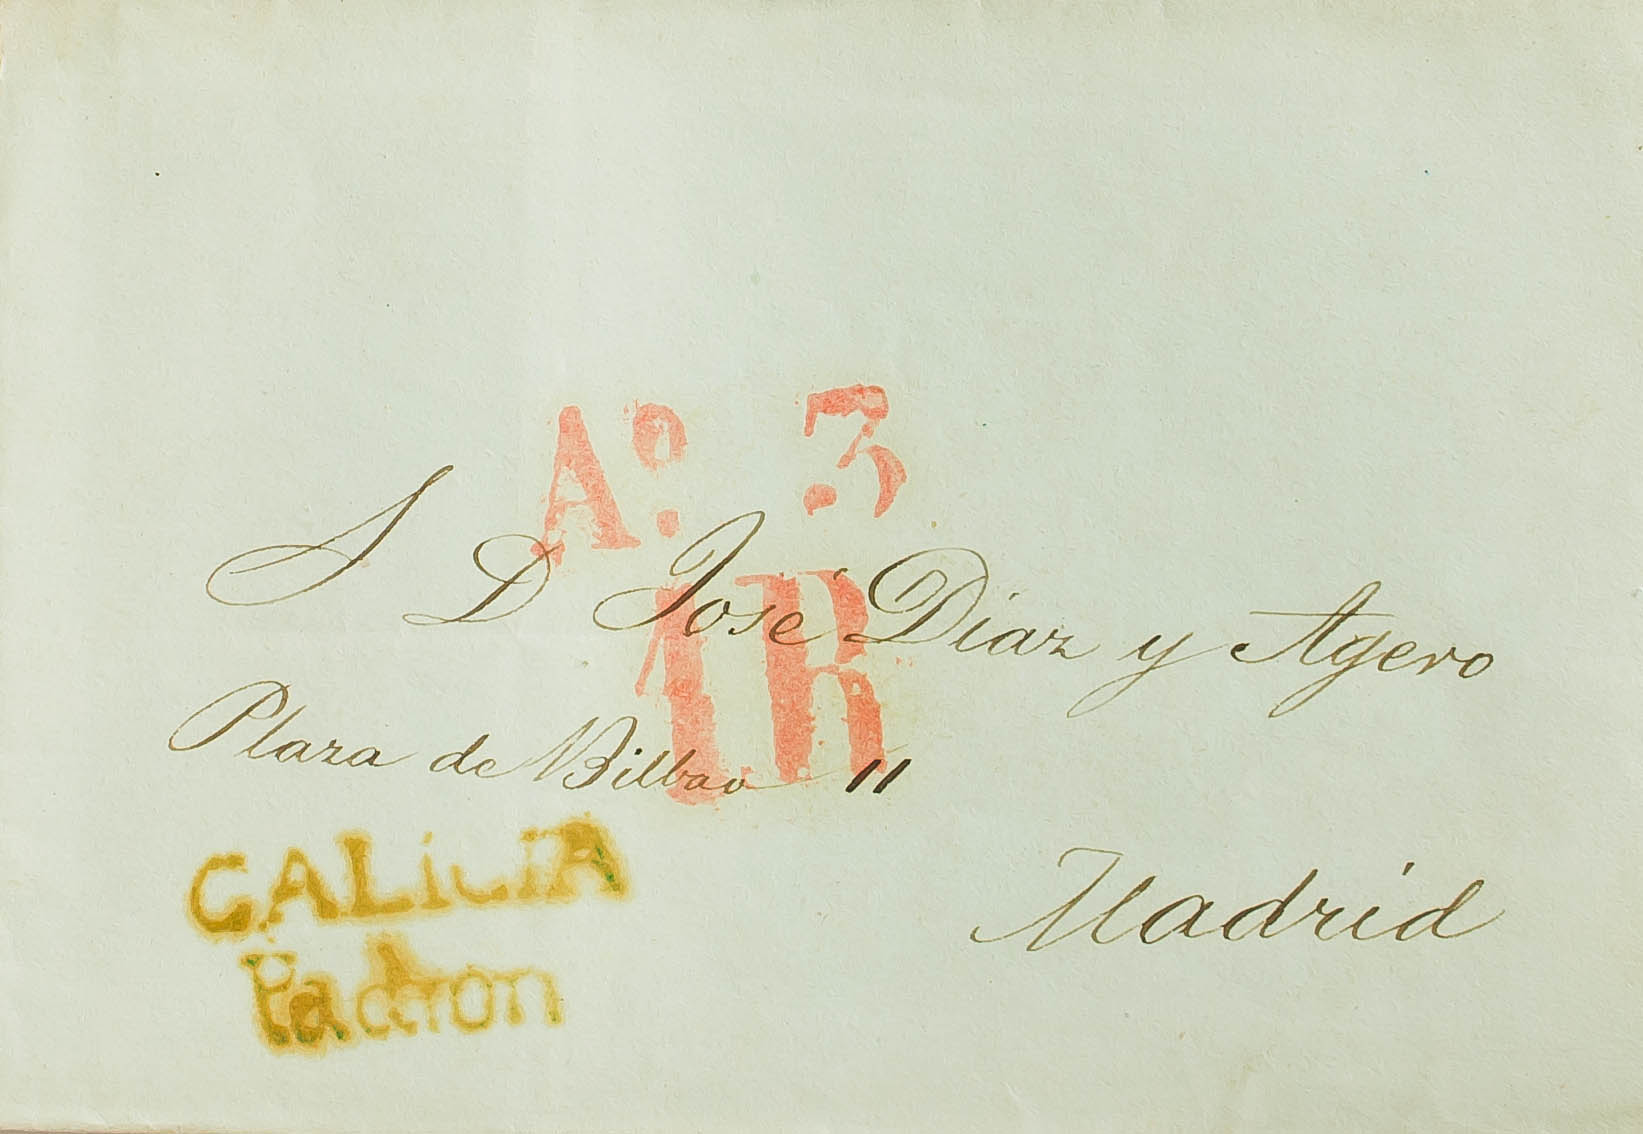 Aº. 3
1R
S D José Diaz y Agero
Plaza de Bilbao 11
Madrid
GALiCiA
Padron